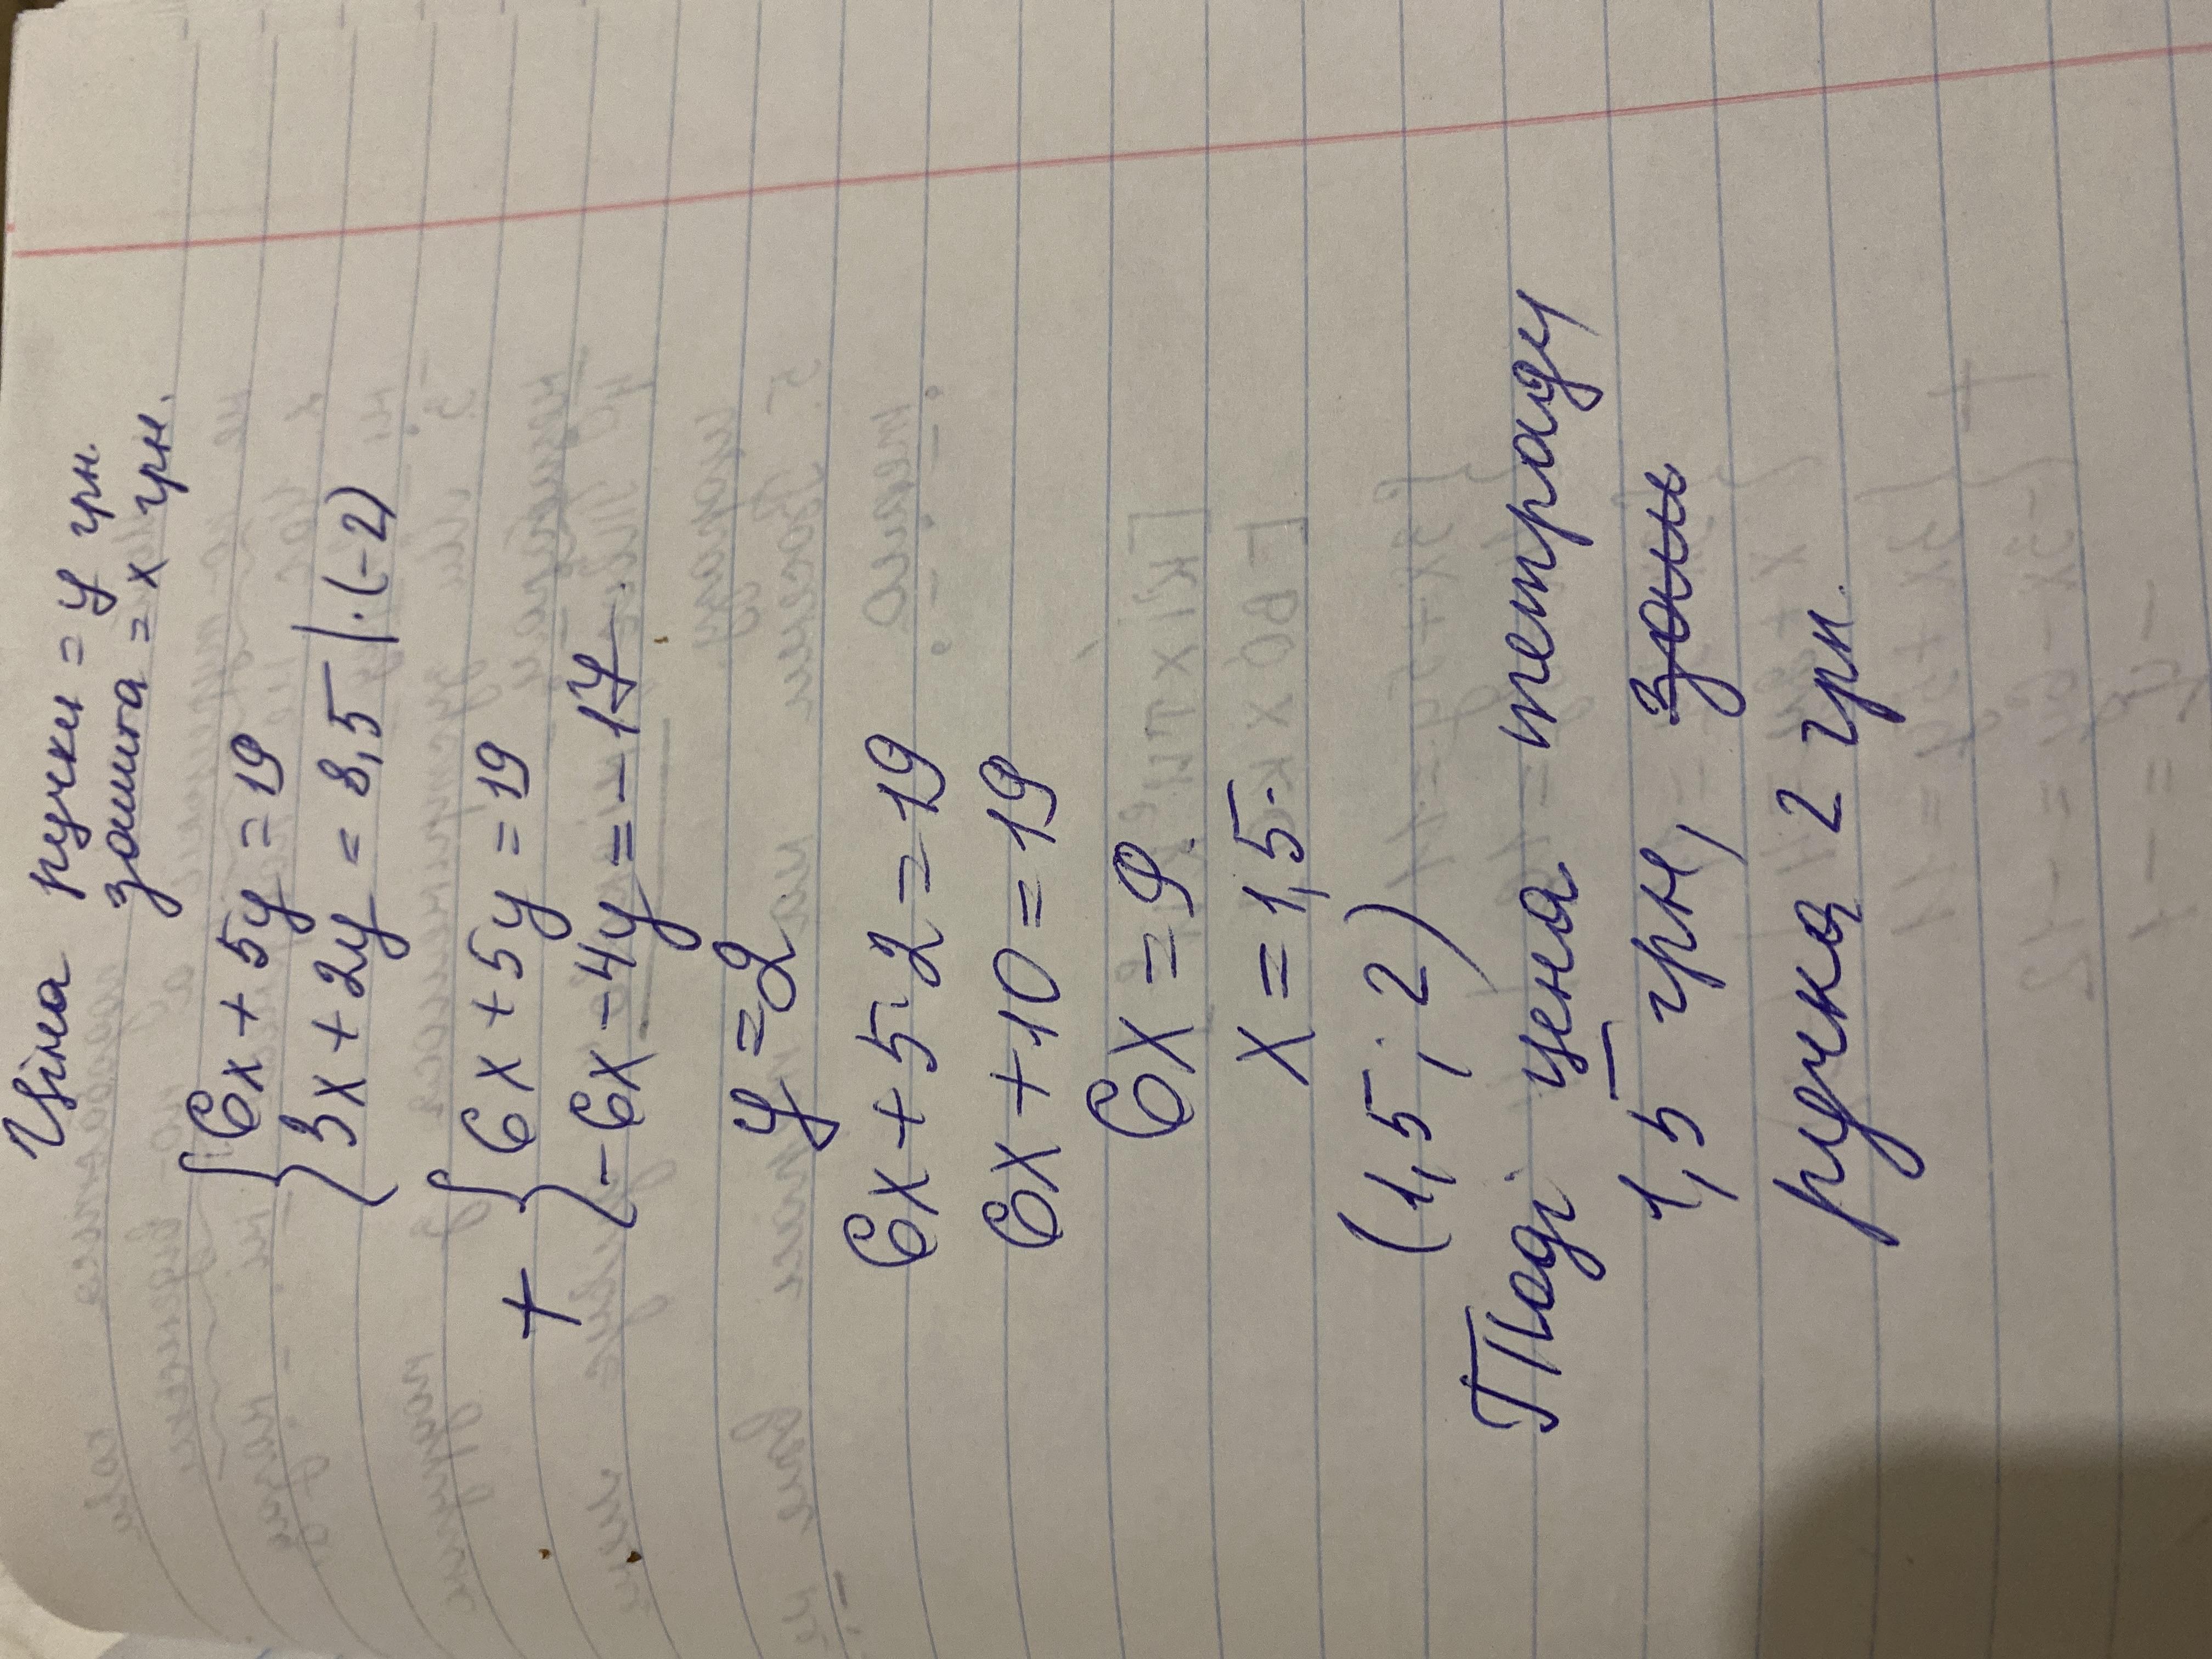 Ціна ручки = y грн.
зошита = x грн.
6x + 5y = 19
3x + 2y = 8,5 | · (-2)
+ { 6x + 5y = 19
-6x - 4y = -17.
y = 2
6x + 5 · 2 = 19
6x + 10 = 19
6x = 9.
x = 1,5.
(1,5; 2)
Тоді цена тетраду
1,5 грн,
ручка 2 грн.